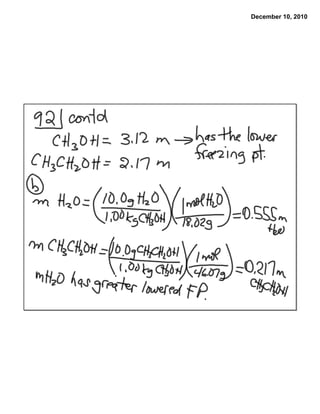 December 10, 2010
92) contd
CH₃OH = 3.12 m → has the lower
freezing pt.
CH₃CH₂OH = 2.17 m
ⓑ
m H₂O = (10.0g H₂O / 1.00 kg CH₃OH)(1 mol H₂O / 18.02g) = 0.555 m
H₂O
m CH₃CH₂OH = (10.0g CH₃CH₂OH / 1.00 kg CH₃OH)(1 mol / 46.07g) = 0.217 m
CH₃CH₂OH
mH₂O has greater lowered FP.